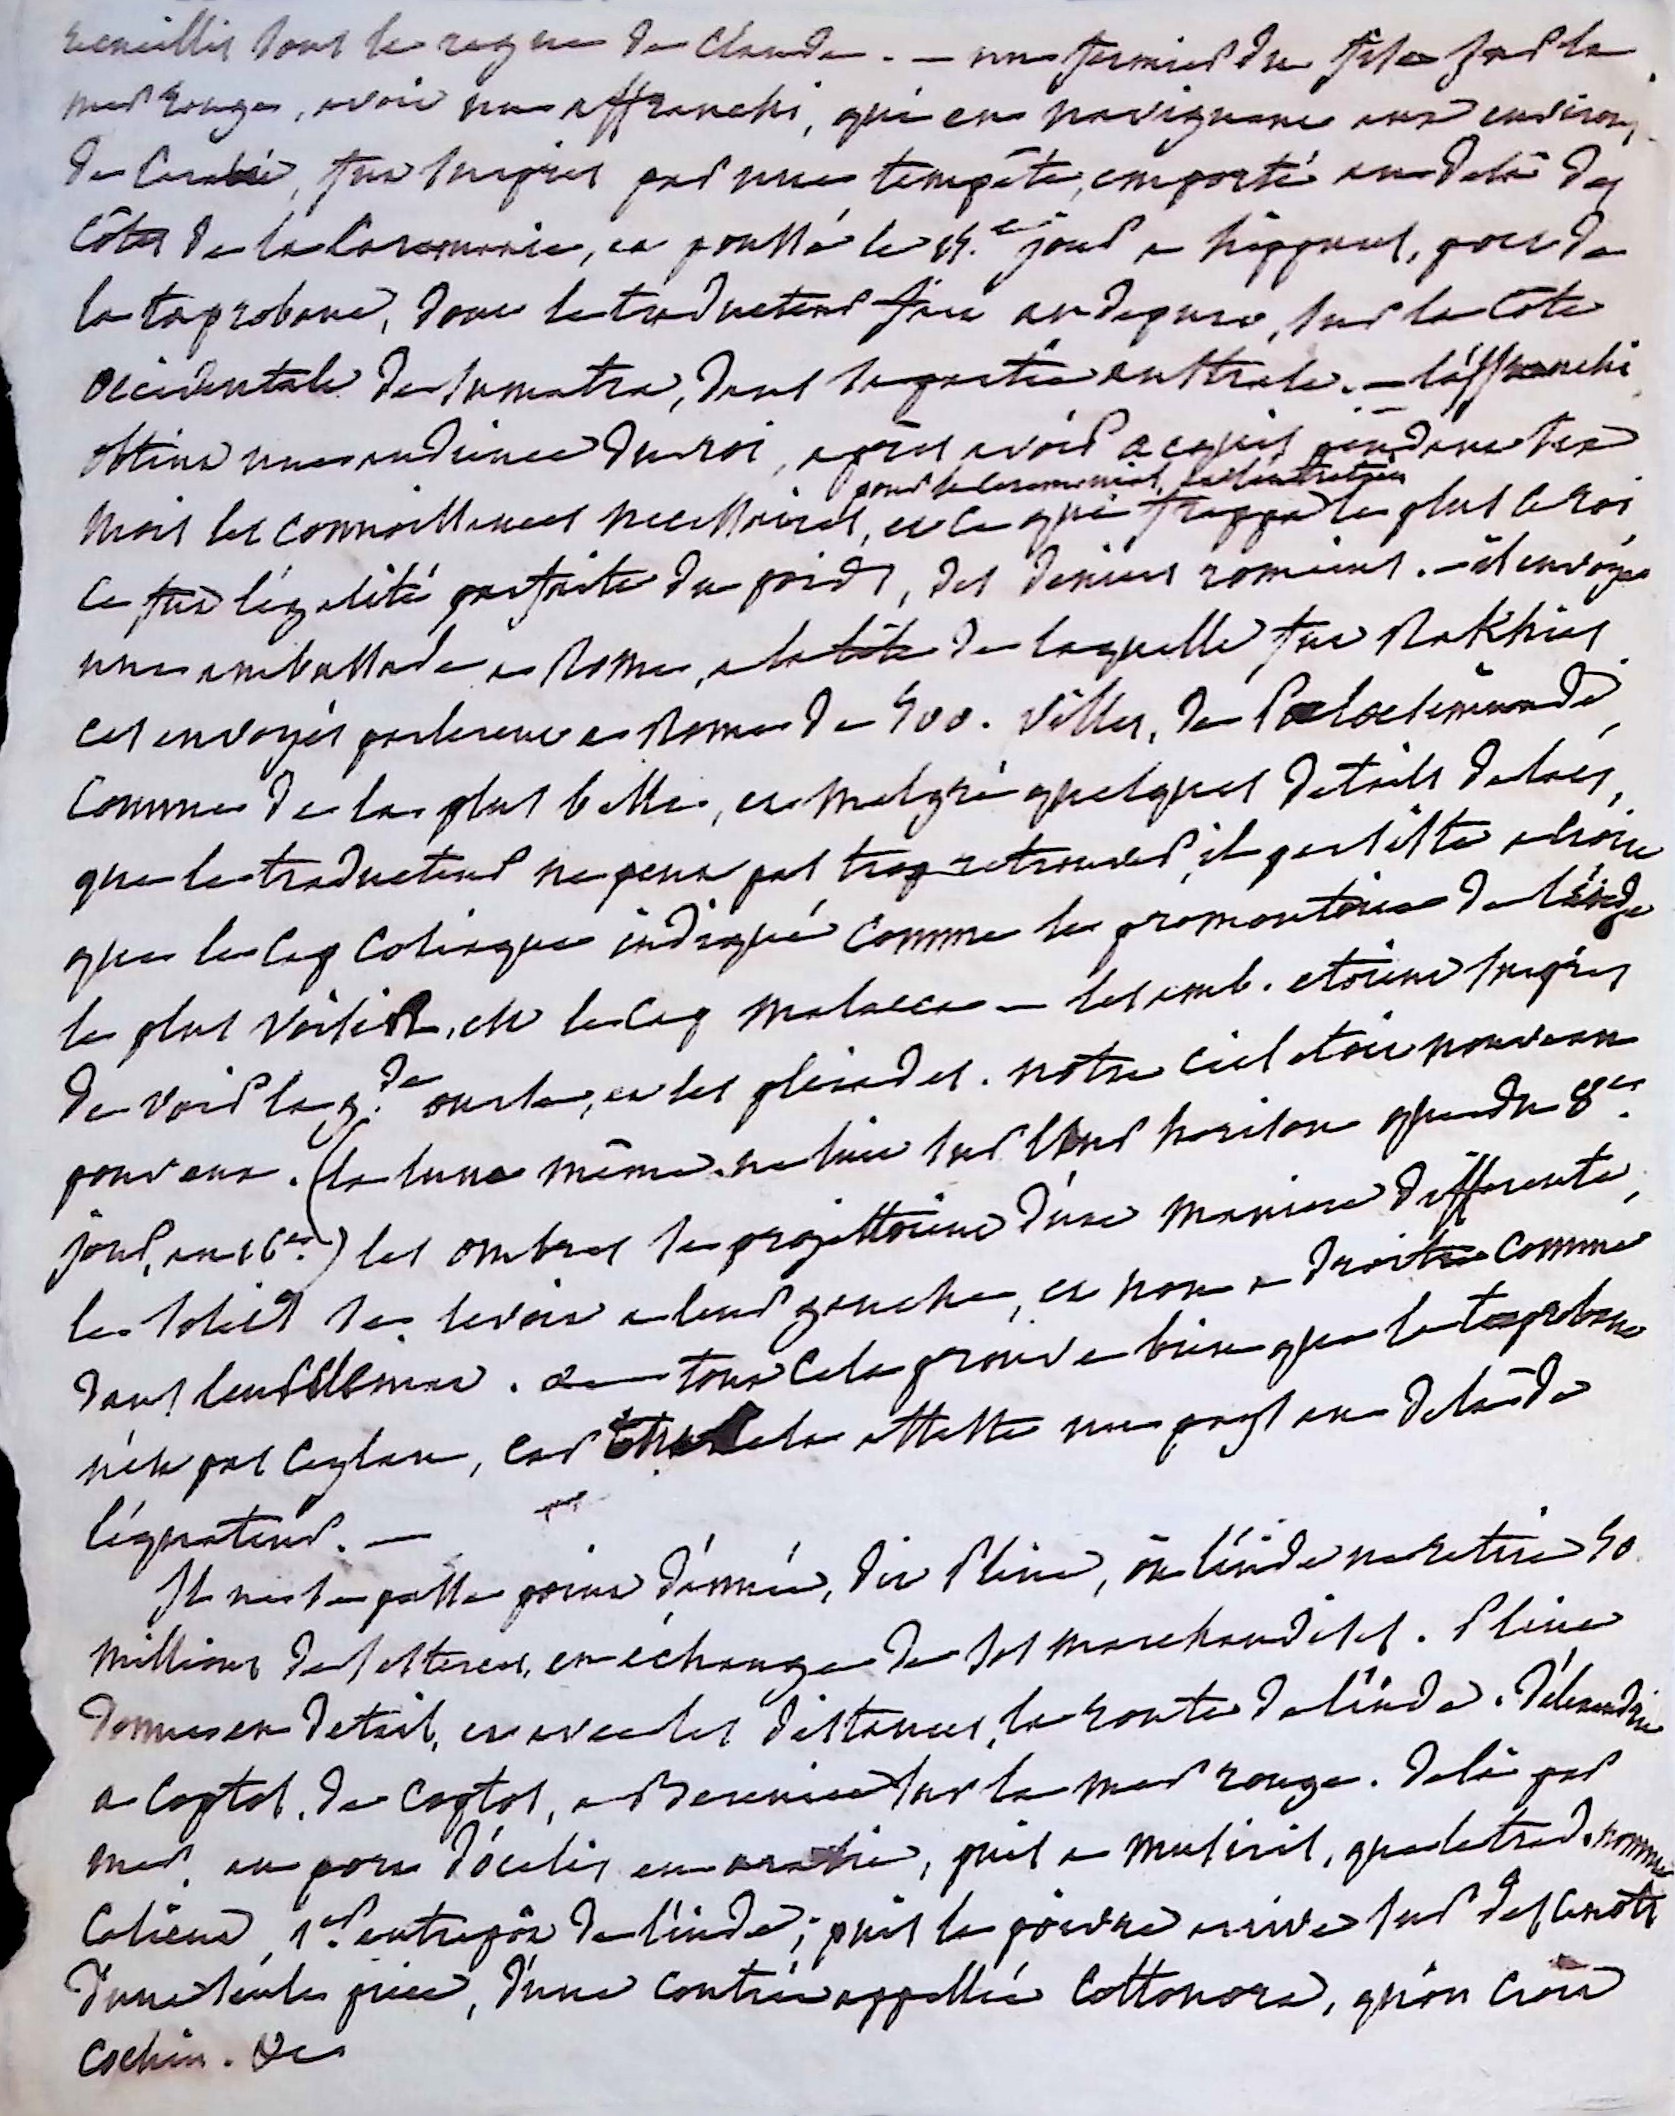 recueillis sous le regne de Claude. — un fermier du fisc sur la
mer rouge, avoit un affranchi, qui en navigeant aux environs
de l'arabie, fut surpris par une tempête, emporté au dela des
côtes de la Caramanie, et poussé le 15.e jour a hippures, port de
la taprobane, dont le traducteur fait andapure, sur la côte
occidentale de sumatra, dans sa partie australe. — l'affranchi
obtint une audience du roi, après avoir acquis pendant six
pour le ceremonial, et l'entretien
mois les connoissances necessaires, et ce qui frappa le plus ce roi
ce fut l'égalité parfaite du poids, des deniers romains. — il envoya
une ambassade a Rome, a la tête de laquelle fut Rakhias
ces envoyés parlerent a Rome de 500. villes, de Palaesimunde,
comme de la plus belle, et malgré quelques details de lacs,
que le traducteur ne peut pas trop retrouver, il persiste a croire
que le cap coliaque indiqué comme le promontoire de l'inde
le plus voisin, est le cap malacca — les amb. etoient surpris
de voir la g.de ourse, et les pleiades. notre ciel etoit nouveau
pour eux. (la lune même ne luit sur leur horison que du 8.e
jour, au 16.e) les ombres se projettoient d'une maniere differente,
le soleil se levoit a leur gauche, et non a droite comme
dans leur climat. tout cela prouve bien que la taprobane
n'est pas ceylan, car cela atteste un pays au dela de
l'équateur. —
Il ne se passe point d'année, dit Pline, où l'inde ne retire 50
millions de sesterces, en échange de ses marchandises. Pline
donne en detail, et avec les distances, la route de l'inde. d'alexandrie
a coptos, de coptos, a Berenice sur la mer rouge. de là par
mer, au port d'ocelis en arabie, puis a musiris, que le trad. nomme
calicut, 1.er entrepôt de l'inde; puis le poivre arrive sur des canots
d'une seule piece, d'une contrée appellée Cottonora, qu'on croit
cochin. &c